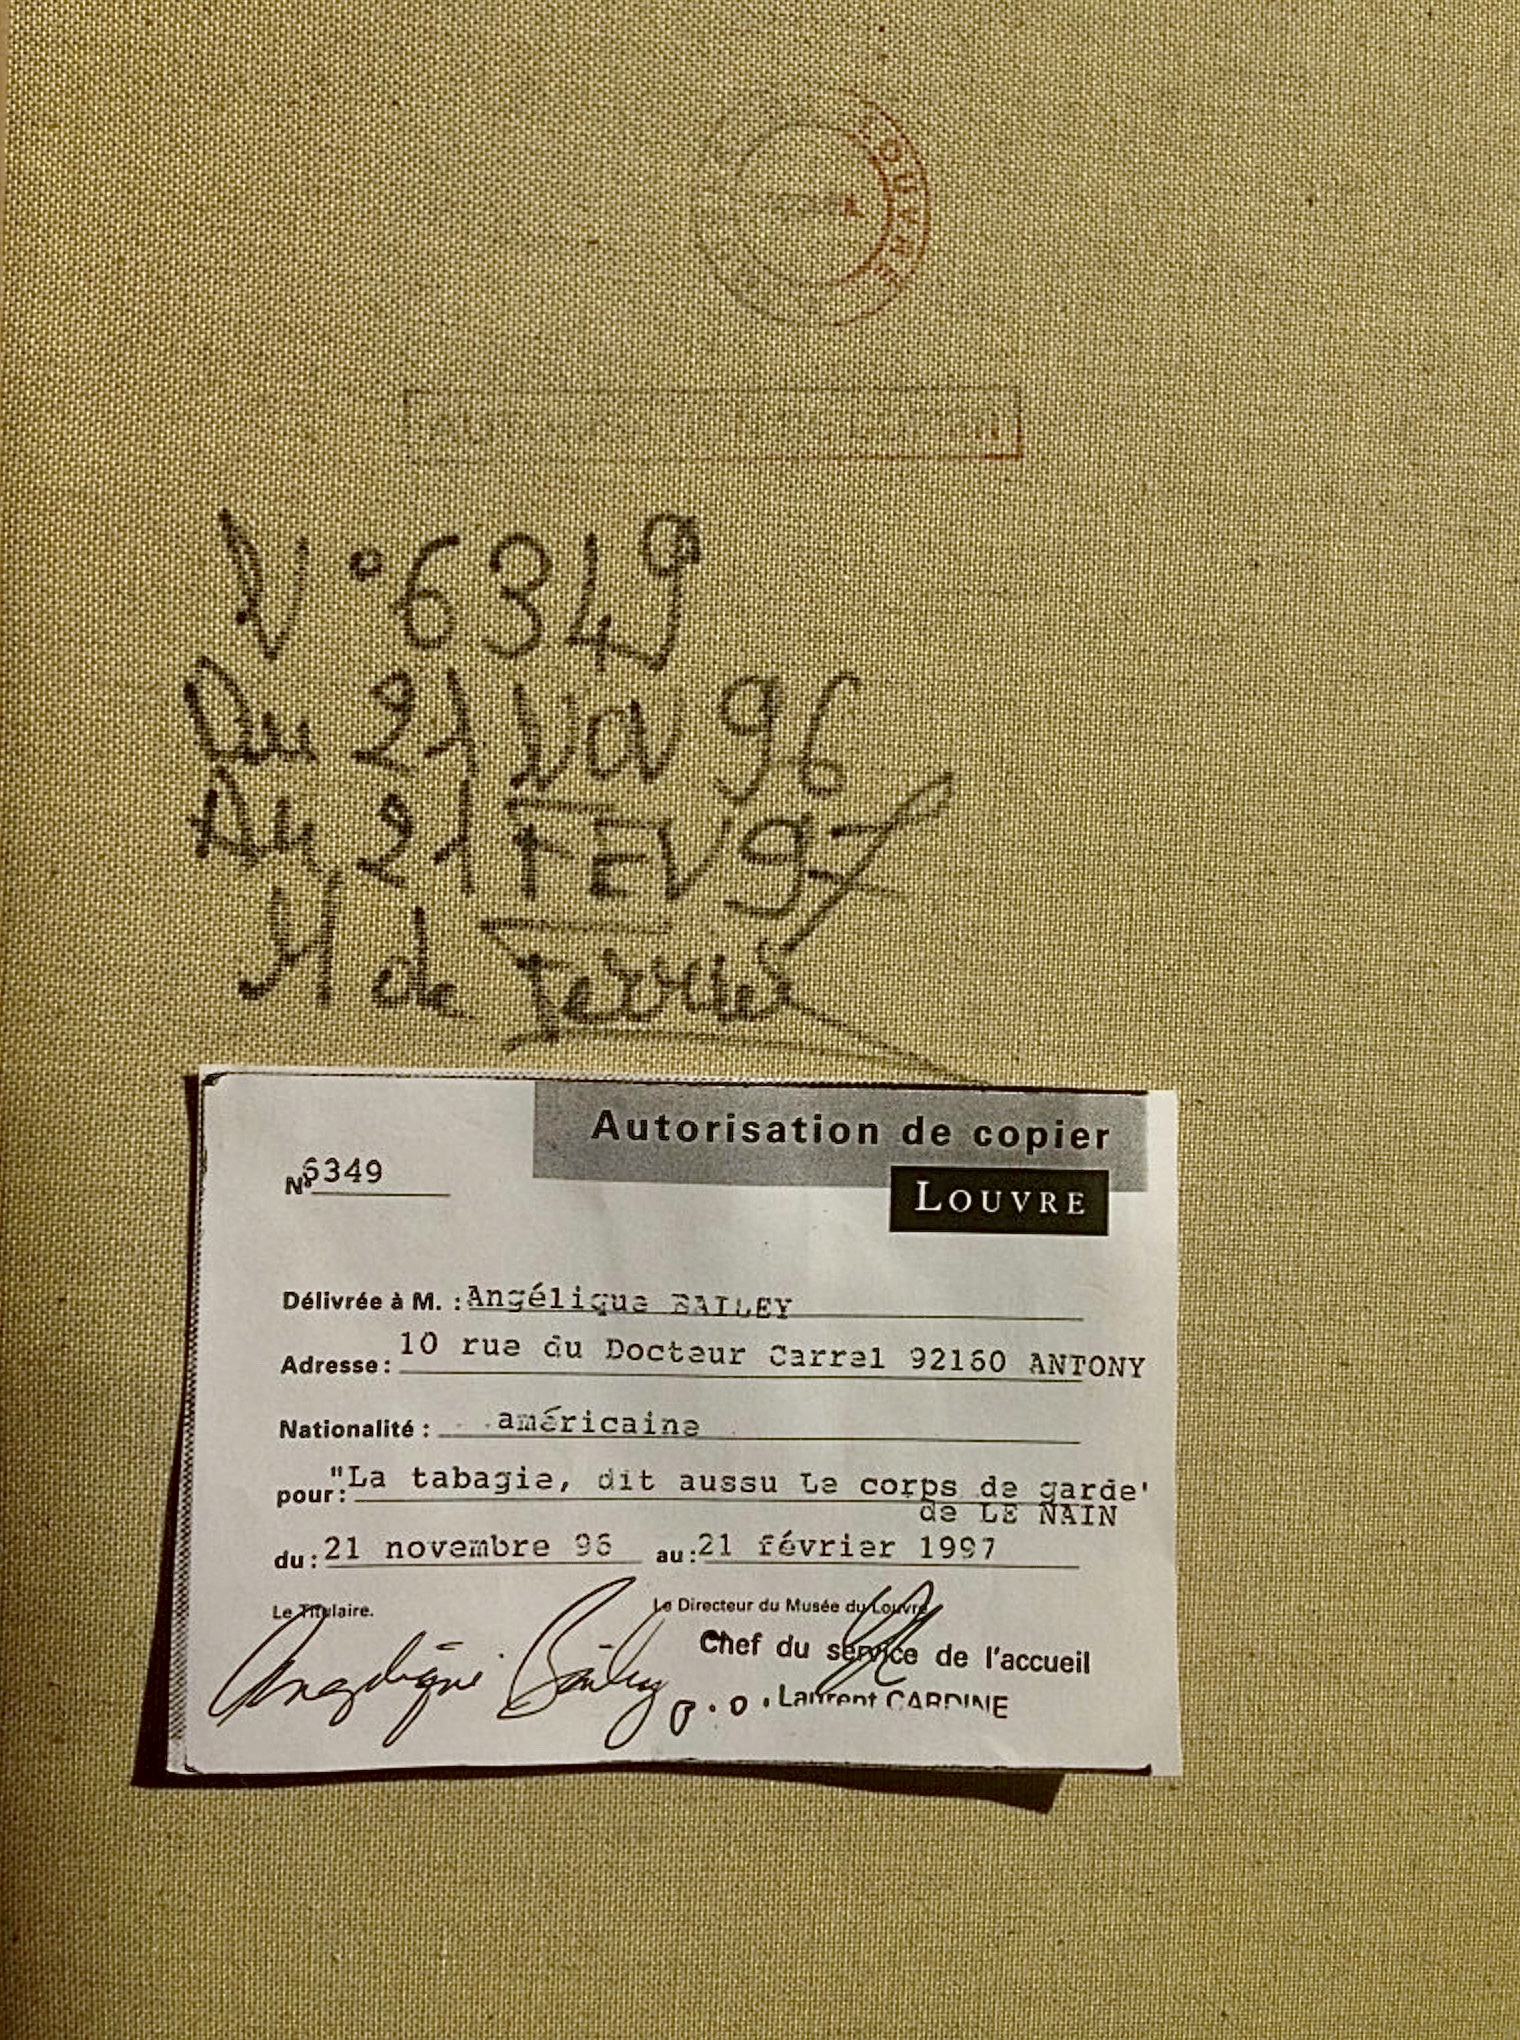 LOUVRE
N° 6349
Du 21 NOV 96
Au 21 FEV 97
M de
Autorisation de copier
LOUVRE
N° 6349
Délivrée à M. : Angélique BAILEY
Adresse : 10 rue du Docteur Carrel 92160 ANTONY
Nationalité : américaine
pour : "La tabagie, dit aussu Le corps de garde'
de LE NAIN
du : 21 novembre 96 au : 21 février 1997
Le Titulaire. Le Directeur du Musée du Louvre
Chef du service de l'accueil
Angélique Bailey p.o. Laurent CARDINE